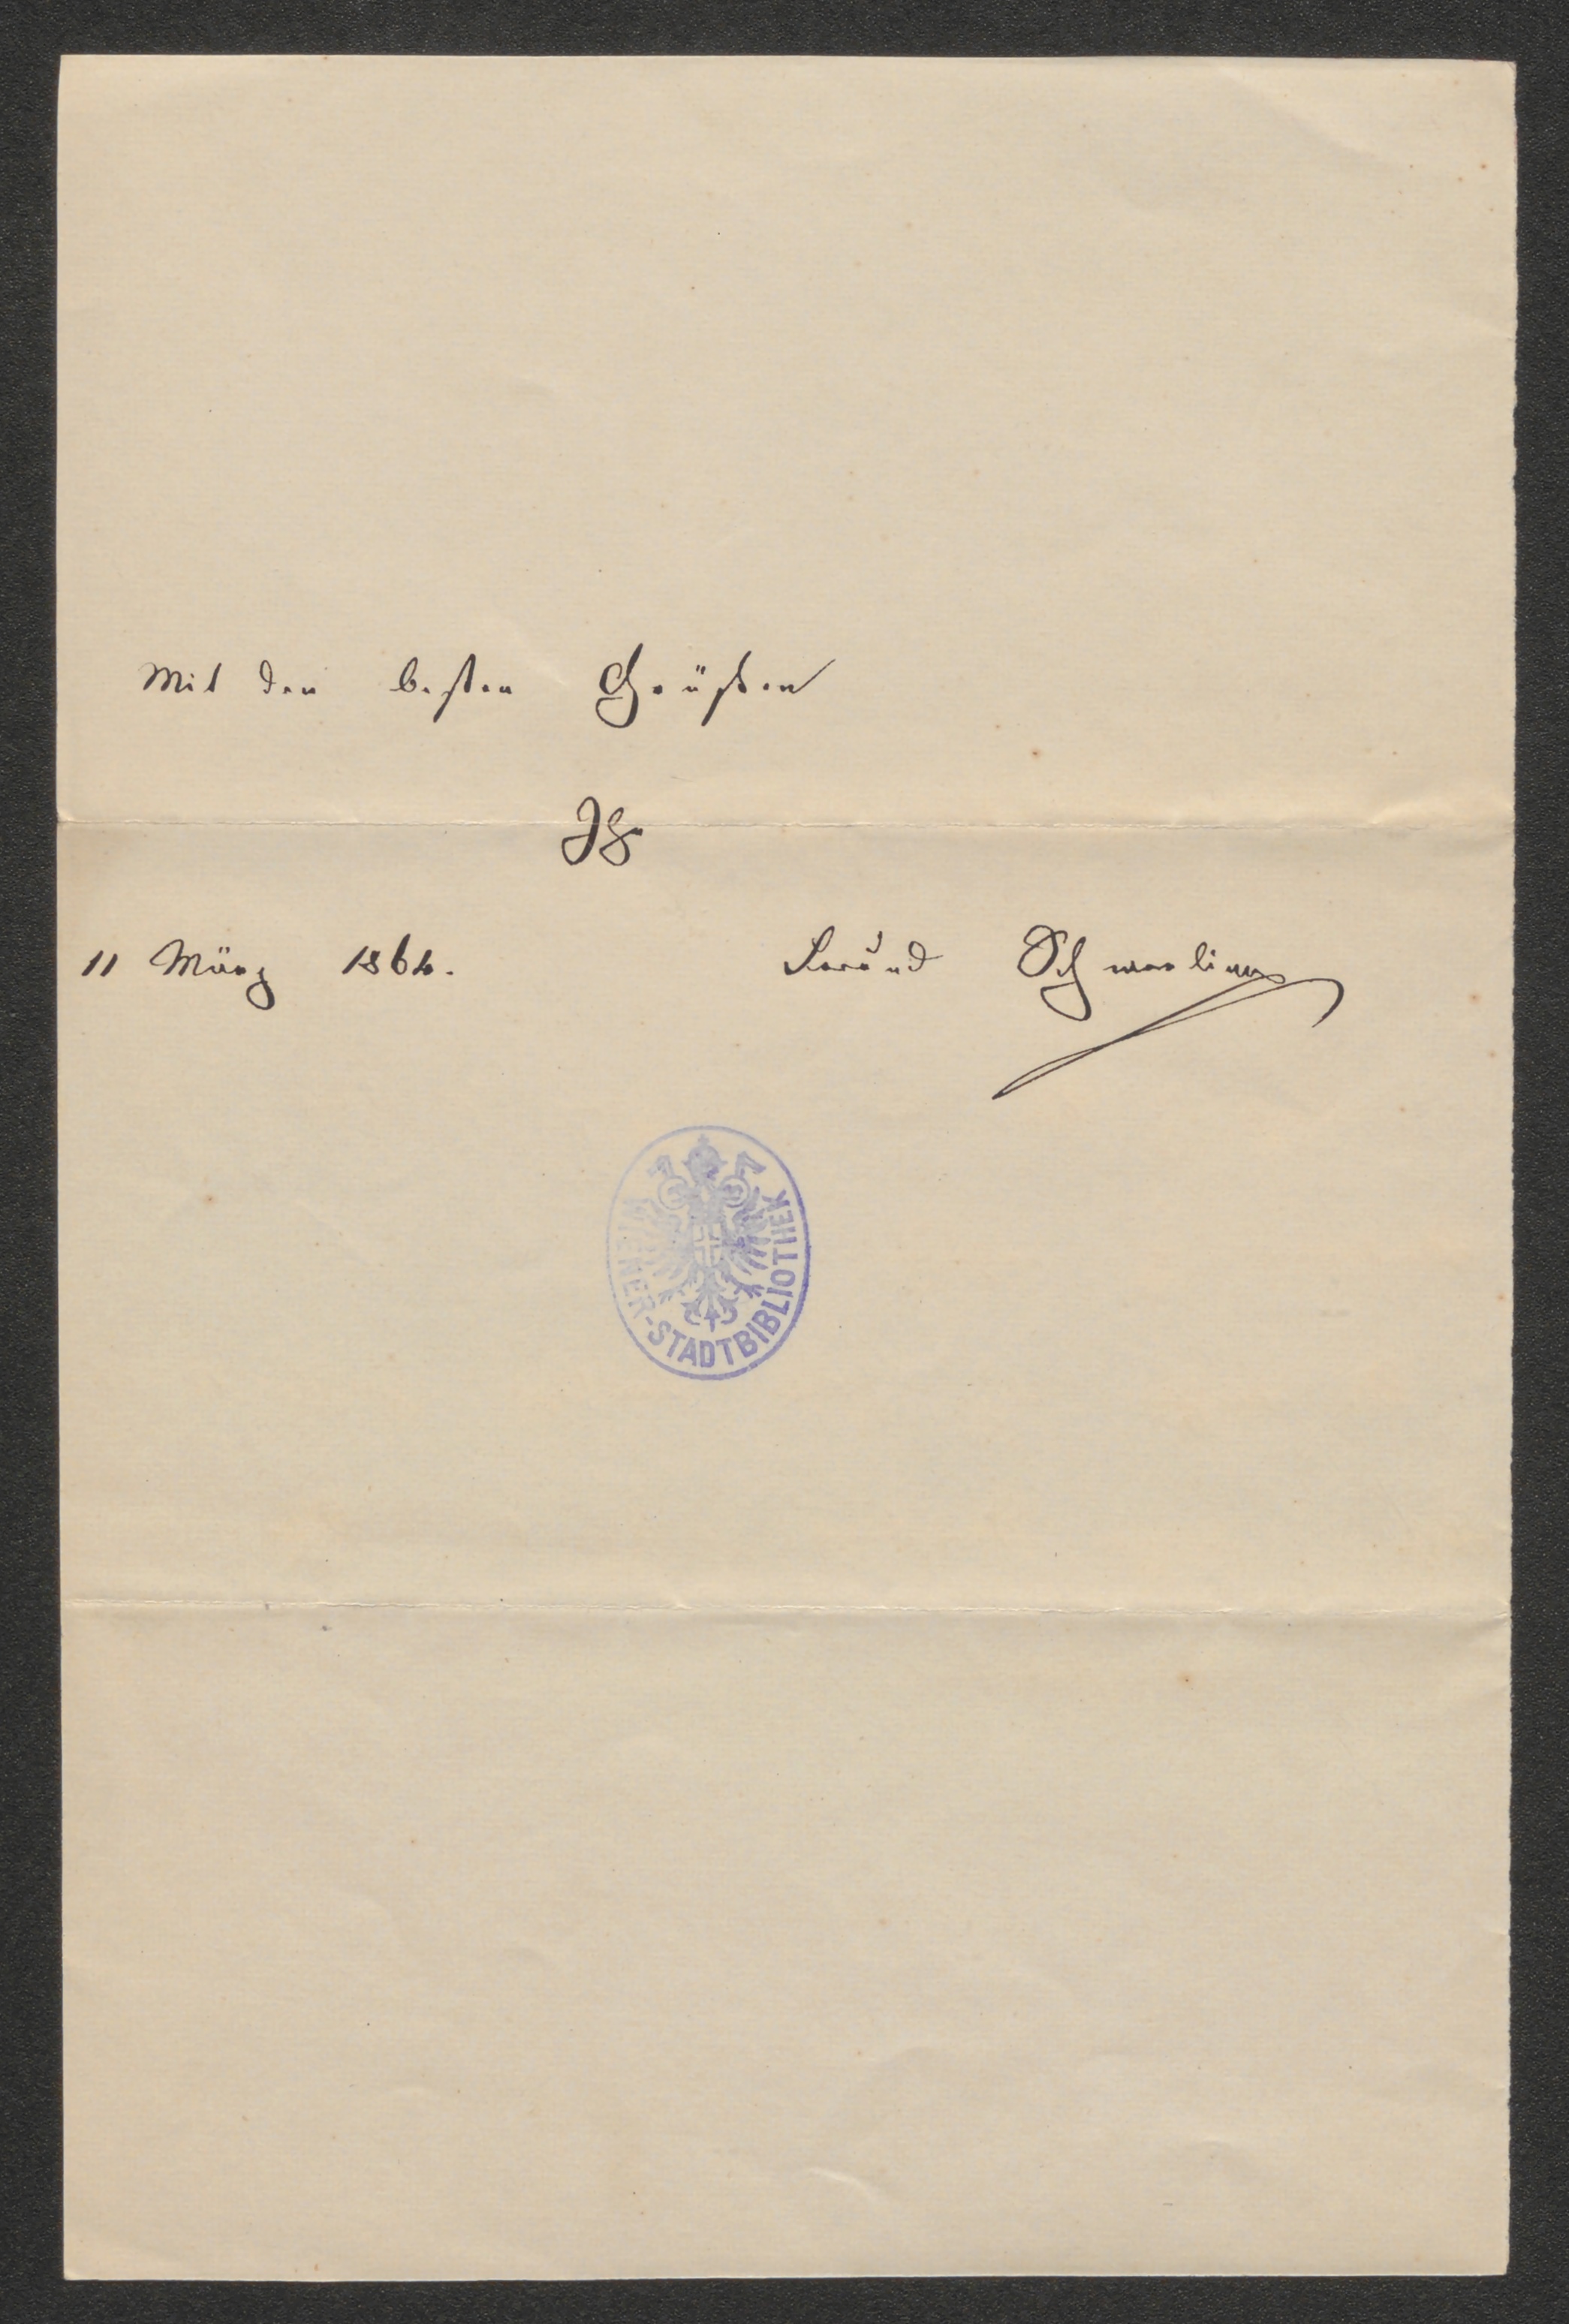 Mit den besten Grüßen
Ihr
11 März 1864.
Freund Schmerling
WIENER-STADTBIBLIOTHEK